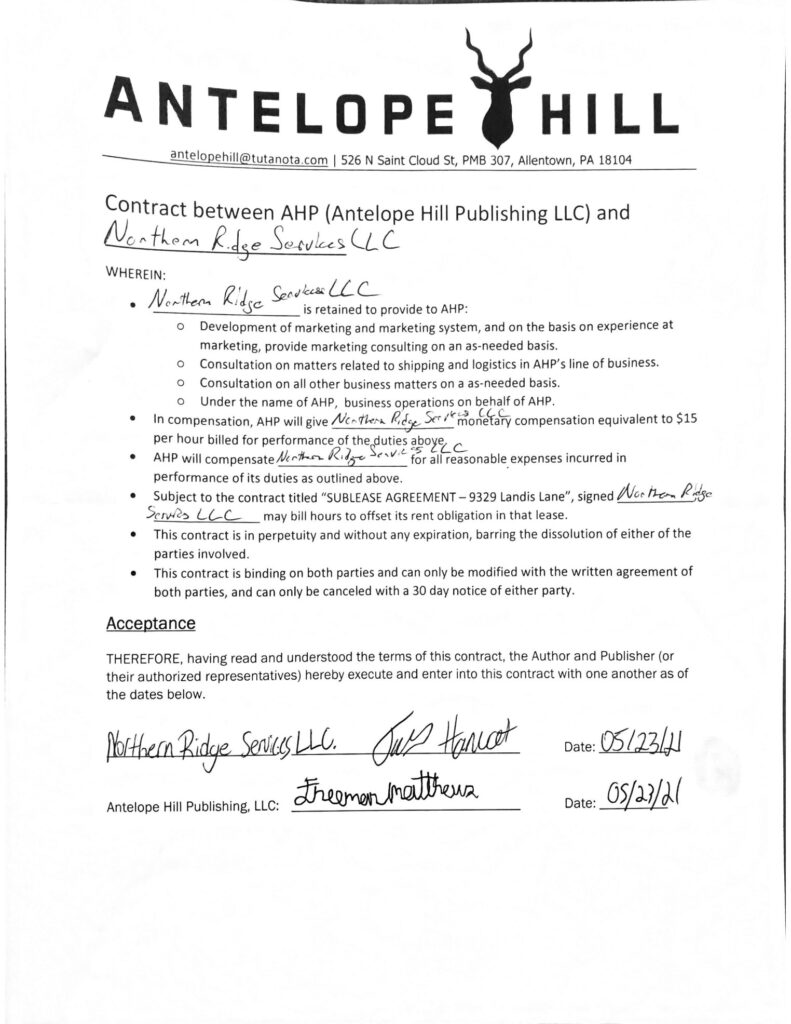 ANTELOPE HILL
antelopehill@tutanota.com | 526 N Saint Cloud St, PMB 307, Allentown, PA 18104
Contract between AHP (Antelope Hill Publishing LLC) and
Northern Ridge Services LLC
WHEREIN:
• Northern Ridge Services LLC is retained to provide to AHP:
o Development of marketing and marketing system, and on the basis on experience at
marketing, provide marketing consulting on an as-needed basis.
o Consultation on matters related to shipping and logistics in AHP's line of business.
o Consultation on all other business matters on a as-needed basis.
o Under the name of AHP, business operations on behalf of AHP.
• In compensation, AHP will give Northern Ridge Services LLC monetary compensation equivalent to $15
per hour billed for performance of the duties above.
• AHP will compensate Northern Ridge Services LLC for all reasonable expenses incurred in
performance of its duties as outlined above.
• Subject to the contract titled "SUBLEASE AGREEMENT – 9329 Landis Lane", signed Northern Ridge
Services LLC may bill hours to offset its rent obligation in that lease.
• This contract is in perpetuity and without any expiration, barring the dissolution of either of the
parties involved.
• This contract is binding on both parties and can only be modified with the written agreement of
both parties, and can only be canceled with a 30 day notice of either party.
Acceptance
THEREFORE, having read and understood the terms of this contract, the Author and Publisher (or
their authorized representatives) hereby execute and enter into this contract with one another as of
the dates below.
Northern Ridge Services LLC. Date: 05/23/21
Antelope Hill Publishing, LLC: Freeman Matthews Date: 05/23/21